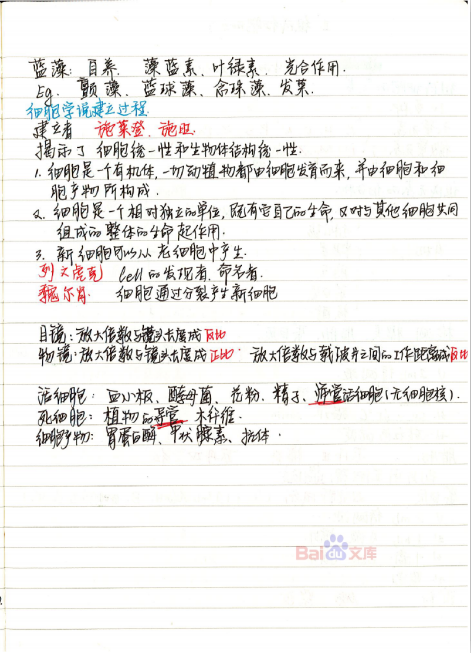 蓝藻: 自养. 藻蓝素、叶绿素、光合作用.
Eg. 颤藻、蓝球藻、念珠藻、发菜.
细胞学说建立过程
建立者 施莱登、施旺.
揭示了 细胞统一性和生物体结构统一性.
1. 细胞是一个有机体, 一切动植物都由细胞发育而来, 并由细胞和细
胞产物所构成.
2. 细胞是一个相对独立的单位, 既有它自己的生命, 又对与其他细胞共同
组成的整体的生命起作用.
3. 新细胞可以从老细胞中产生.
列文虎克 Cell的发现者、命名者.
魏尔肖. 细胞通过分裂产生新细胞
目镜: 放大倍数与镜头长度成反比
物镜: 放大倍数与镜头长度成正比; 放大倍数与载玻片之间的工作距离成反比
活细胞: 血小板、酵母菌、花粉、精子、筛管活细胞(无细胞核).
死细胞: 植物的导管、木纤维.
细胞产物: 胃蛋白酶、甲状腺素、抗体.
Bai du 文库